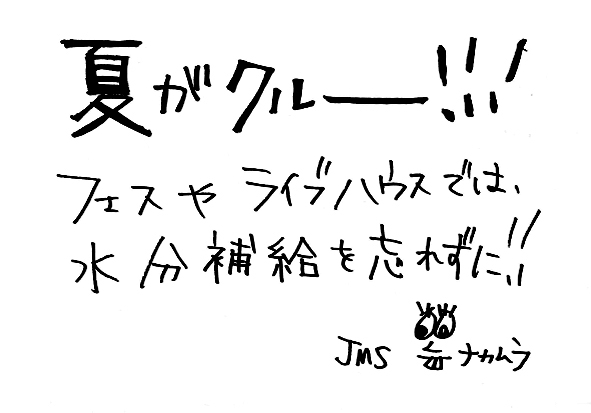 夏がクルー!!!
フェスやライブハウスでは、
水分補給を忘れずに!!
JMS ナカムラ